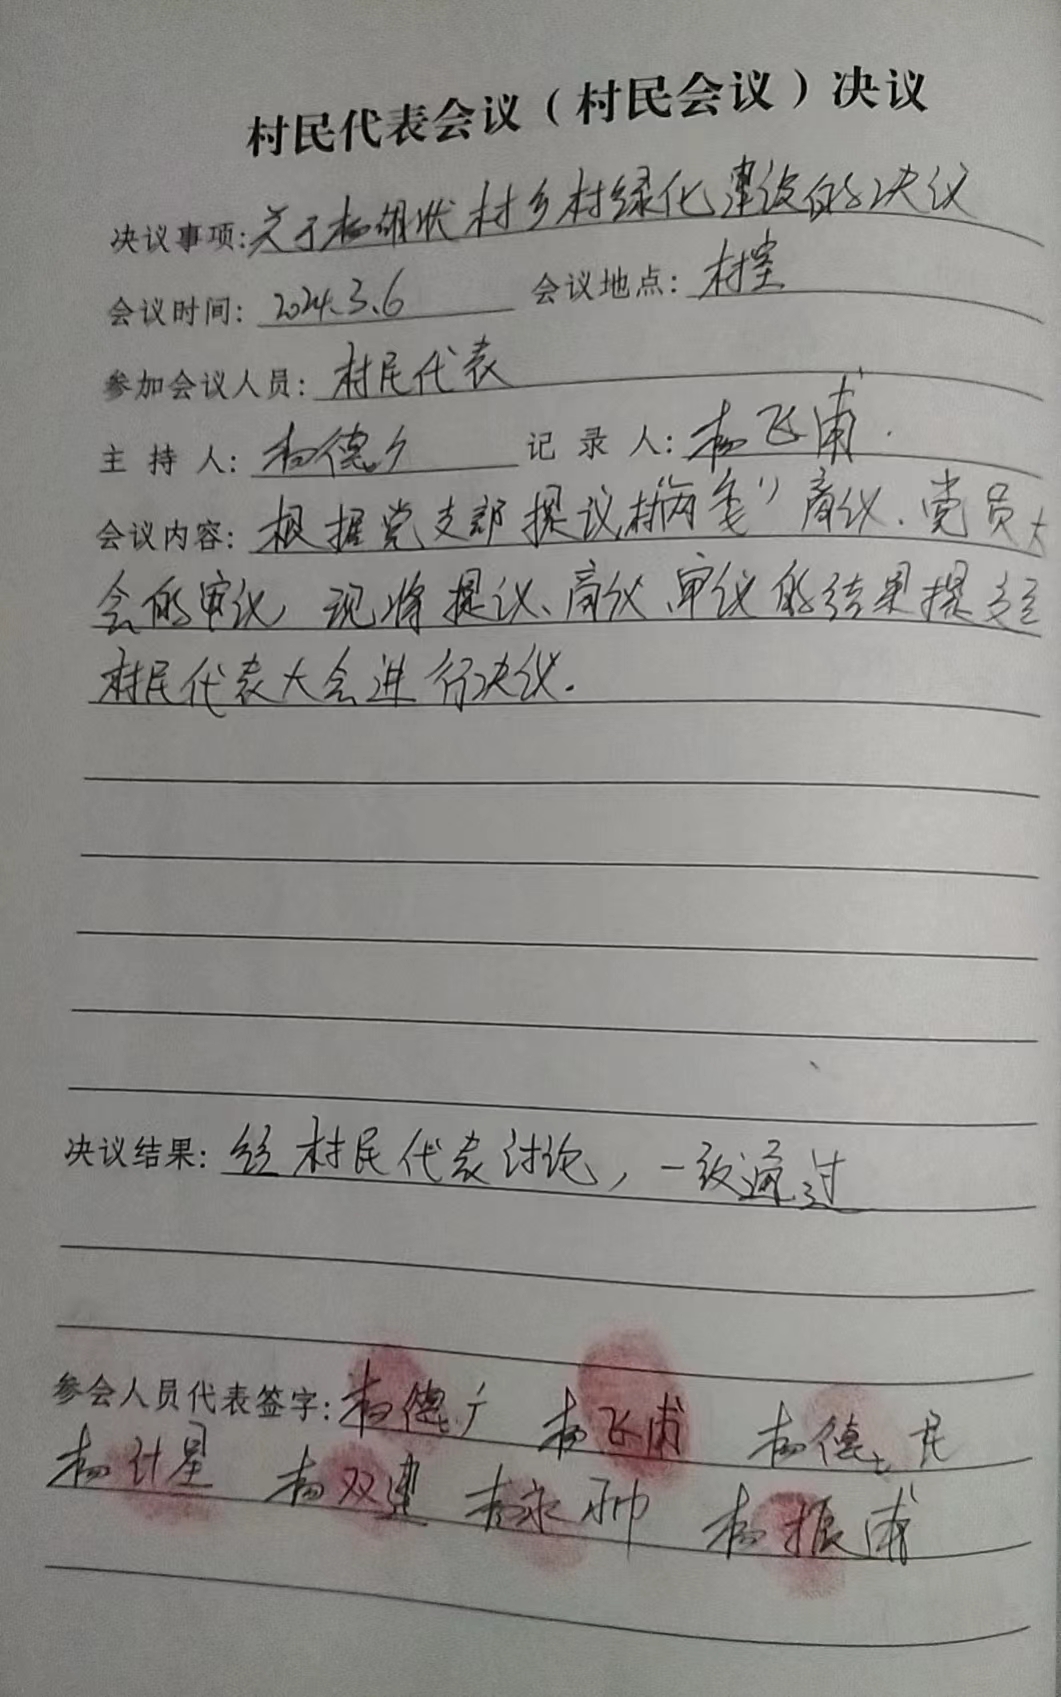 村民代表会议（村民会议）决议
决议事项:关于杨胡状村乡村绿化建设的决议
会议时间: 2024.3.6 会议地点: 村室
参加会议人员: 村民代表
主持人: 杨德广 记录人: 杨飞甫.
会议内容: 根据党支部提议,村“两委”商议、党员大
会的审议,现将提议、商议、审议的结果提交
村民代表大会进行决议.
决议结果: 经村民代表讨论,一致通过
参会人员代表签字: 杨德广 杨飞甫 杨德民
杨计星 杨双建 杨永帅 杨振甫